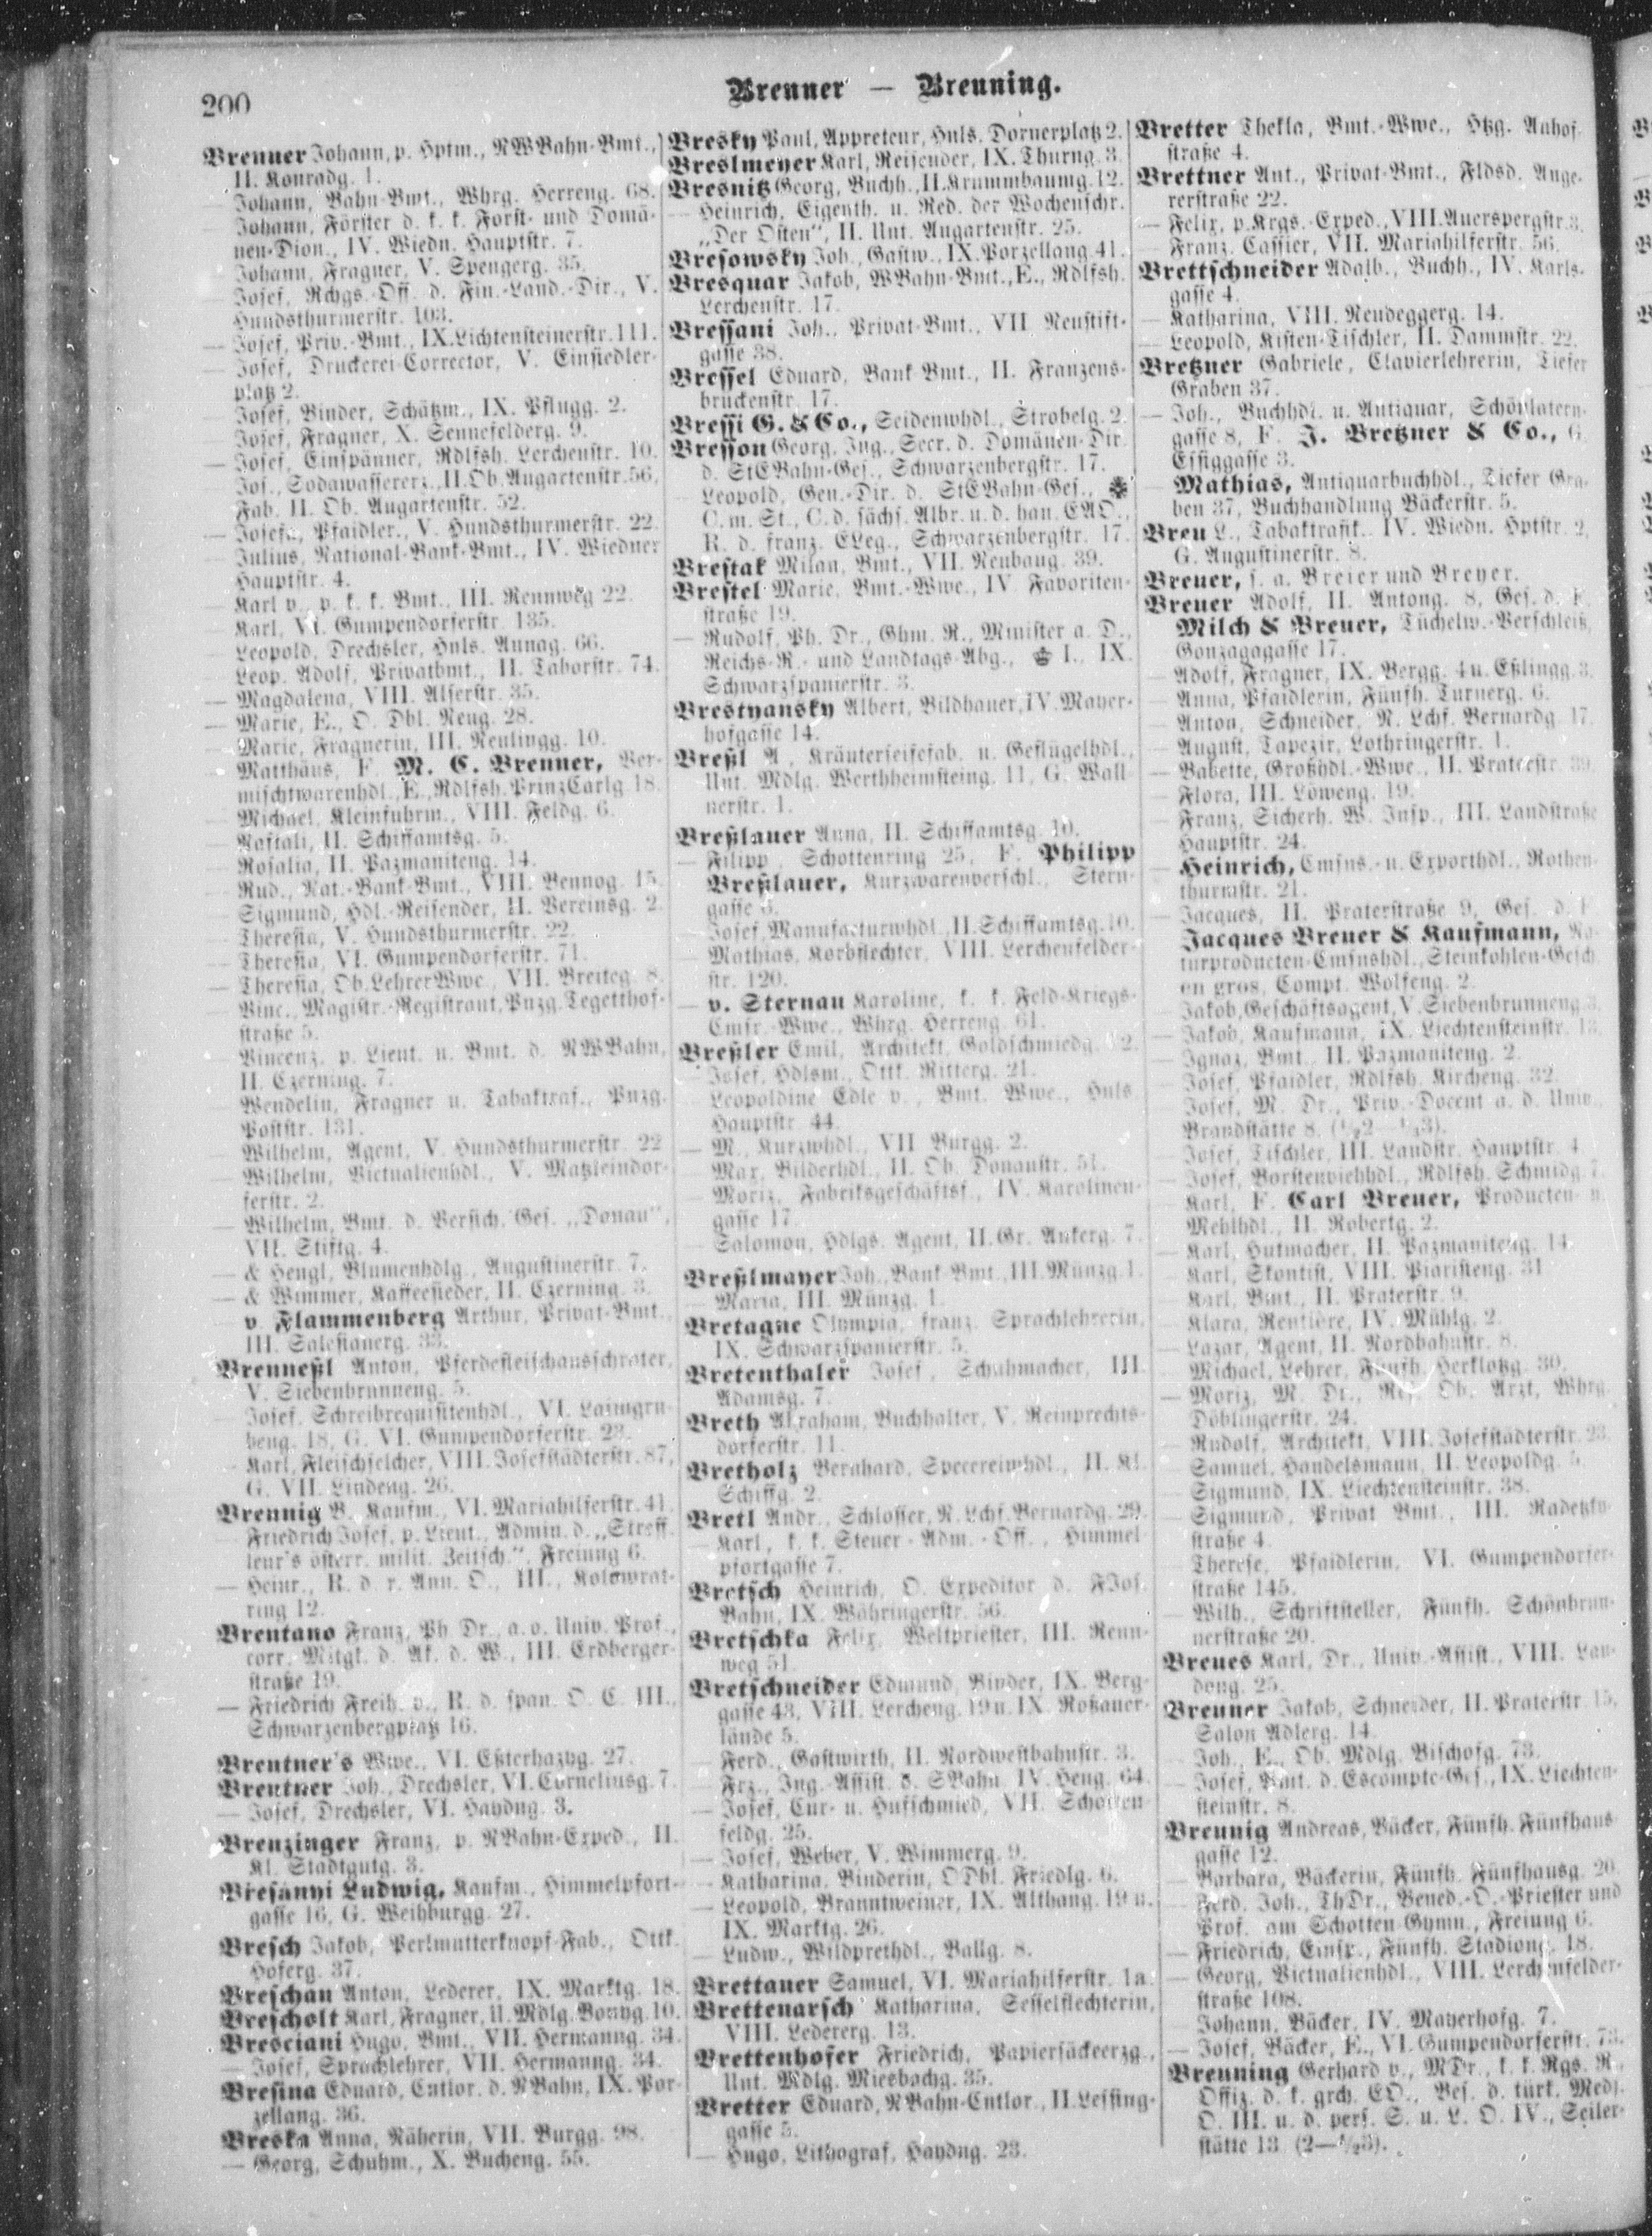 200
Brenner — Breuning.
Brenner Johann, p. Hptm., NWBahn-Bmt.,
II. Konradg. 1.
— Johann, Bahn-Bmt., Whrg. Herreng. 68.
— Johann, Förster d. k. k. Forst- und Domä-
nen-Dion., IV. Wiedn. Hauptstr. 7.
— Johann, Fragner, V. Spengerg. 35.
— Josef, Rchgs.-Off. d. Fin.-Land.-Dir., V.
Hundsthurmerstr. 103.
— Josef, Priv.-Bmt., IX. Lichtensteinerstr. 111.
— Josef, Druckerei-Corrector, V. Einsiedler-
platz 2.
— Josef, Binder, Schätzm., IX. Pflugg. 2.
— Josef, Fragner, X. Sennefelderg. 9.
— Josef, Einspänner, Rdlfsh. Lerchenstr. 10.
— Jos., Sodawassererz., II. Ob. Augartenstr. 56,
Fab. II. Ob. Augartenstr. 52.
— Josefa, Pfaidler., V. Hundsthurmerstr. 22.
— Julius, National-Bank-Bmt., IV. Wiedner
Hauptstr. 4.
— Karl v., p. k. k. Bmt., III. Rennweg 22.
— Karl, VI. Gumpendorferstr. 135.
— Leopold, Drechsler, Hnls. Annag. 66.
— Leop. Adolf, Privatbmt., II. Taborstr. 74.
— Magdalena, VIII. Alserstr. 35.
— Marie, E., O. Dbl. Neug. 28.
— Marie, Fragnerin, III. Reulingg. 10.
— Matthäus, F. M. C. Brenner, Ver-
mischtwarenhdl., E., Rdlfsh. Prinz Carlg. 18.
— Michael, Kleinfuhrm., VIII. Feldg. 6.
— Naftali, II. Schiffamtsg. 5.
— Rosalia, II. Pazmaniteng. 14.
— Rud., Nat.-Bank-Bmt., VIII. Bennog. 15.
— Sigmund, Hdl.-Reisender, II. Vereinsg. 2.
— Theresia, V. Hundsthurmerstr. 22.
— Theresia, VI. Gumpendorferstr. 71.
— Theresia, Ob. Lehrer Wwe., VII. Breiteg. 8.
— Vinc., Magistr.-Registrant, Pnzg. Tegetthof-
straße 5.
— Vincenz, p. Lieut. u. Bmt. d. NWBahn,
II. Czerning. 7.
— Wendelin, Fragner u. Tabaktraf., Pnzg.
Poststr. 131.
— Wilhelm, Agent, V. Hundsthurmerstr. 22
— Wilhelm, Victualienhdl., V. Matzleindor-
ferstr. 2.
— Wilhelm, Bmt. d. Versich. Ges. „Donau“,
VII. Stiftg. 4.
— & Hengl, Blumenhdlg., Augustinerstr. 7.
— & Wimmer, Kaffeesieder, II. Czerning. 3.
— v. Flammenberg Arthur, Privat-Bmt.,
III. Salesianerg. 33.
Brenneßl Anton, Pferdefleischausschroter,
V. Siebenbrunneng. 5.
— Josef, Schreibrequisitenhdl., VI. Laimgru-
beng. 18, G. VI. Gumpendorferstr. 23.
— Karl, Fleischselcher, VIII. Josefstädterstr. 87,
G. VII. Lindeng. 26.
Brennig B. Kaufm., VI. Mariahilferstr. 41.
— Friedrich Josef, p. Lieut., Admin. d. „Streff-
leur's österr. milit. Zeitsch.“, Freiung 6.
— Heinr., R. d. r. Ann. O., III., Kolowrat-
ring 12.
Brentano Franz, Ph. Dr., a. o. Univ. Prof.,
corr. Mitgl. d. Ak. d. W., III. Erdberger-
straße 19.
— Friedrich Freih. v., R. d. span. O. C. III.,
Schwarzenbergplatz 16.
Brentner's Wwe., VI. Eßterhazyg. 27.
Brentner Joh., Drechsler, VI. Corneliusg. 7.
— Josef, Drechsler, VI. Haydng. 3.
Brenzinger Franz, p. NBahn-Exped., II.
Kl. Stadtgutg. 3.
Bresanyi Ludwig, Kaufm., Himmelpfort-
gasse 16, G. Weihburgg. 27.
Bresch Jakob, Perlmutterknopf-Fab., Ottk.
Hoferg. 37.
Breschau Anton, Lederer, IX. Marktg. 18.
Brescholt Karl, Fragner, U. Mdlg. Bonyg. 10.
Bresciani Hugo, Bmt., VII. Hermanng. 34.
— Josef, Sprachlehrer, VII. Hermanng. 34.
Bresina Eduard, Cntlor. d. NBahn, IX. Por-
zellang. 36.
Breska Anna, Näherin, VII. Burgg. 98.
— Georg, Schuhm., X. Bucheng. 55.
Bresky Paul, Appreteur, Hnls. Dornerplatz 2.
Breslmeyer Karl, Reisender, IX. Thurng. 3.
Bresnitz Georg, Buchh., II. Krummbaumg. 12.
— Heinrich, Eigenth. u. Red. der Wochenschr.
„Der Osten“, II. Unt. Augartenstr. 25.
Bresowsky Joh., Gastw., IX. Porzellang. 41.
Bresquar Jakob, WBahn-Bmt., E., Rdlfsh.
Lerchenstr. 17.
Bressani Joh., Privat-Bmt., VII Neustift-
gasse 38.
Bressel Eduard, Bank Bmt., II. Franzens-
brückenstr. 17.
Bressi G. & Co., Seidenwhdl., Strobelg. 2.
Bresson Georg, Ing., Secr. d. Domänen-Dir.
d. StEBahn-Ges., Schwarzenbergstr. 17.
— Leopold, Gen.-Dir. d. StEBahn-Ges.,
C. m. St., C. d. sächs. Albr. u. d. han. EAO.,
R. d. franz. ELeg., Schwarzenbergstr. 17.
Brestak Milan, Bmt., VII. Neubaug. 39.
Brestel Marie, Bmt.-Wwe., IV Favoriten-
straße 19.
— Rudolf, Ph. Dr., Ghm. R., Minister a. D.,
Reichs-R.- und Landtags-Abg., I., IX.
Schwarzspanierstr. 3.
Brestyansky Albert, Bildhauer, IV. Mayer-
hofgasse 14.
Breßl A., Kräuterseifefab. u. Geflügelhdl.,
Unt. Mdlg. Werthheimsteing. 11, G. Wall-
nerstr. 1.
Breßlauer Anna, II. Schiffamtsg. 10.
— Filipp, Schottenring 25, F. Philipp
Breßlauer, Kurzwarenverschl., Stern-
gasse 3.
— Josef, Manufacturwhdl., II. Schiffamtsg. 10.
— Mathias, Korbflechter, VIII. Lerchenfelder-
str. 120.
— v. Sternau Karoline, k. k. Feld-Kriegs-
Cmsr.-Wwe., Whrg. Herreng. 61.
Breßler Emil, Architekt, Goldschmiedg.
— Josef, Hdlsm., Ottk. Ritterg. 21.
— Leopoldine Edle v., Bmt. Wwe., Hnls.
Hauptstr. 44.
— M. Kurzwhdl., VII Burgg. 2.
— Max, Bilderhdl., II. Ob. Donaustr. 51.
— Moriz, Fabriksgeschäftsf., IV. Karolinen-
gasse 17.
— Salomon, Hdlgs. Agent, II. Gr. Ankerg. 7.
Breßlmayer Joh., Bank-Bmt., III. Münzg. 1.
— Maria, III. Münzg. 1.
Bretagne Olympia, franz. Sprachlehrerin,
IX. Schwarzspanierstr. 5.
Bretenthaler Josef, Schuhmacher, III.
Adamsg. 7.
Breth Abraham, Buchhalter, V. Reinprechts-
dorferstr. 11.
Bretholz Bernhard, Specereiwhdl., II. Kl.
Schiffg. 2.
Bretl Andr., Schlosser, N. Lchf. Bernardg. 29.
— Karl, k. k. Steuer-Adm.-Off., Himmel-
pfortgasse 7.
Bretsch Heinrich, O. Expeditor d. FJos.
Bahn, IX. Währingerstr. 56.
Bretschka Felix, Weltpriester, III. Renn-
weg 51.
Bretschneider Edmund, Binder, IX. Berg-
gasse 43, VIII. Lercheng. 19 u. IX. Roßauer-
lände 5.
— Ferd., Gastwirth, II. Nordwestbahnstr. 3.
— Frz., Ing.-Assist. d. SBahn, IV. Heug. 64.
— Josef, Cur- u. Hufschmied, VII. Schotten-
feldg. 25.
— Josef, Weber, V. Wimmerg. 9.
— Katharina, Binderin, ODbl. Friedlg. 6.
— Leopold, Branntweiner, IX. Althang. 19 u.
IX. Marktg. 26.
— Ludw., Wildprethdl., Ballg. 8.
Brettauer Samuel, VI. Mariahilferstr. 1a.
Brettenarsch Katharina, Sesselflechterin,
VIII. Ledererg. 13.
Brettenhofer Friedrich, Papiersäckeerzg.,
Unt. Mdlg. Miesbachg. 35.
Bretter Eduard, NBahn-Cntlor., II. Lessing-
gasse 5.
— Hugo, Lithograf, Haydng. 23.
Bretter Thekla, Bmt.-Wwe., Htzg. Anhof-
straße 4.
Brettner Ant., Privat-Bmt., Fldsd. Ange-
rerstraße 22.
— Felix, p. Krgs.-Exped., VIII. Auerspergstr. 3.
— Franz, Cassier, VII. Mariahilferstr. 56.
Brettschneider Adalb., Buchh., IV. Karls-
gasse 4.
— Katharina, VIII. Neudeggerg. 14.
— Leopold, Kisten-Tischler, II. Dammstr. 22.
Bretzner Gabriele, Clavierlehrerin, Tiefer
Graben 37.
— Joh., Buchhdl. u. Antiquar, Schönlatern-
gasse 8, F. J. Bretzner & Co., G.
Essiggasse 3.
— Mathias, Antiquarbuchhdl., Tiefer Gra-
ben 37, Buchhandlung Bäckerstr. 5.
Breu L., Tabaktrafik., IV. Wiedn. Hptstr. 2,
G. Augustinerstr. 8.
Breuer, s. a. Breier und Breyer.
Breuer Adolf, II. Antong. 8, Ges. d. F.
Milch & Breuer, Tüchelw.-Verschleiß,
Gonzagagasse 17.
— Adolf, Fragner, IX. Bergg. 4 u. Eßlingg. 3.
— Anna, Pfaidlerin, Fünfh. Turnerg. 6.
— Anton, Schneider, N. Lchf. Bernardg. 17.
— August, Tapezir, Lothringerstr. 1.
— Babette, Großhdl.-Wwe., II. Praterstr. 39.
— Flora, III. Löweng. 19.
— Franz, Sicherh. W. Insp., III. Landstraße
Hauptstr. 24.
— Heinrich, Cmsns.- u. Exporthdl., Rothen-
thurmstr. 21.
— Jacques, II. Praterstraße 9, Ges. d. F.
Jacques Breuer & Kaufmann, Na-
turproducten-Cmsnshdl., Steinkohlen-Gesch.
en gros, Compt. Wolfeng. 2.
— Jakob, Geschäftsagent, V. Siebenbrunneng. 3.
— Jakob, Kaufmann, IX. Liechtensteinstr. 13.
— Ignaz, Bmt., II. Pazmaniteng. 2.
— Josef, Pfaidler, Rdlfsh. Kircheng. 32.
— Josef, M. Dr., Priv.-Docent a. d. Univ.,
Brandstätte 8. (½2—½3).
— Josef, Tischler, III. Landstr. Hauptstr. 4
— Josef, Borstenviehhdl., Rdlfsh. Schmidg.
— Karl, F. Carl Breuer, Producten- u.
Mehlhdl., II. Robertg. 2.
— Karl, Hutmacher, II. Pazmaniteng. 14.
— Karl, Skontist, VIII. Piaristeng. 31
— Karl, Bmt., II. Praterstr. 9.
— Klara, Rentière, IV. Mühlg. 2.
— Lazar, Agent, II. Nordbahnstr. 8.
— Michael, Lehrer, Fünfh. Herklotzg. 30.
— Moriz, M. Dr., Ob. Arzt, Whrg.
Döblingerstr. 24.
— Rudolf, Architekt, VIII. Josefstädterstr. 23.
— Samuel, Handelsmann, II. Leopoldg. 5.
— Sigmund, IX. Liechtensteinstr. 38.
— Sigmund, Privat Bmt., III. Radetzky-
straße 4.
— Therese, Pfaidlerin, VI. Gumpendorfer-
straße 145.
— Wilh., Schriftsteller, Fünfh. Schönbrun-
nerstraße 20.
Breues Karl, Dr., Univ.-Assist., VIII. Lau-
dong. 25.
Breuner Jakob, Schneider, II. Praterstr. 15,
Salon Adlerg. 14.
— Joh., E., Ob. Mdlg. Bischofg. 73.
— Josef, Bmt. d. Escompte-Ges., IX. Liechten-
steinstr. 8.
Breunig Andreas, Bäcker, Fünfh. Fünfhaus-
gasse 12.
— Barbara, Bäckerin, Fünfh. Fünfhausg. 20.
— Ferd. Joh., ThDr., Bened.-O.-Priester und
Prof. am Schotten-Gymn., Freiung 6.
— Friedrich, Einsp., Fünfh. Stadiong. 18.
— Georg, Victualienhdl., VIII. Lerchenfelder-
straße 108.
— Johann, Bäcker, IV. Mayerhofg. 7.
— Josef, Bäcker, E., VI. Gumpendorferstr. 73.
Breuning Gerhard v., MDr., k. k. Rgs. R.,
Offiz. d. k. grch. EO., Bes. d. türk. Medj.
O. III. u. d. pers. S. u. L. O. IV., Seiler-
stätte 13. (2—½3).